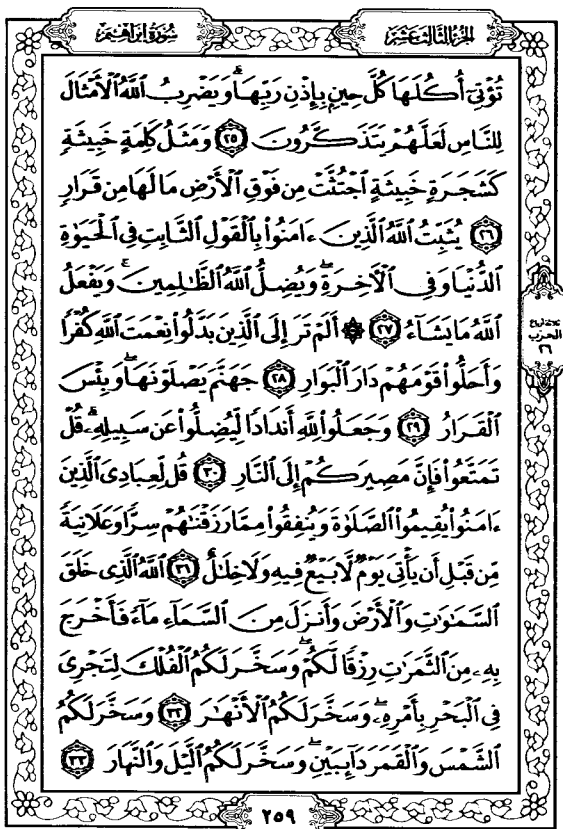 الجزء الثالث عشر
سورة إبراهيم
تُؤْتِيٓ أُكُلَهَا كُلَّ حِينٍۭ بِإِذْنِ رَبِّهَاۗ وَيَضْرِبُ ٱللَّهُ ٱلْأَمْثَالَ
لِلنَّاسِ لَعَلَّهُمْ يَتَذَكَّرُونَ ٢٥ وَمَثَلُ كَلِمَةٍ خَبِيثَةٍ
كَشَجَرَةٍ خَبِيثَةٍ ٱجْتُثَّتْ مِن فَوْقِ ٱلْأَرْضِ مَا لَهَا مِن قَرَارٍ
٢٦ يُثَبِّتُ ٱللَّهُ ٱلَّذِينَ ءَامَنُوا۟ بِٱلْقَوْلِ ٱلثَّابِتِ فِى ٱلْحَيَوٰةِ
ٱلدُّنْيَا وَفِى ٱلْءَاخِرَةِۖ وَيُضِلُّ ٱللَّهُ ٱلظَّٰلِمِينَۚ وَيَفْعَلُ
ٱللَّهُ مَا يَشَآءُ ٢٧ ۞ أَلَمْ تَرَ إِلَى ٱلَّذِينَ بَدَّلُوا۟ نِعْمَتَ ٱللَّهِ كُفْرًا
وَأَحَلُّوا۟ قَوْمَهُمْ دَارَ ٱلْبَوَارِ ٢٨ جَهَنَّمَ يَصْلَوْنَهَاۖ وَبِئْسَ
ٱلْقَرَارُ ٢٩ وَجَعَلُوا۟ لِلَّهِ أَندَادًا لِّيُضِلُّوا۟ عَن سَبِيلِهِۦۗ قُلْ
تَمَتَّعُوا۟ فَإِنَّ مَصِيرَكُمْ إِلَى ٱلنَّارِ ٣٠ قُل لِّعِبَادِىَ ٱلَّذِينَ
ءَامَنُوا۟ يُقِيمُوا۟ ٱلصَّلَوٰةَ وَيُنفِقُوا۟ مِمَّا رَزَقْنَٰهُمْ سِرًّا وَعَلَانِيَةً
مِّن قَبْلِ أَن يَأْتِىَ يَوْمٌ لَّا بَيْعٌ فِيهِ وَلَا خِلَٰلٌ ٣١ ٱللَّهُ ٱلَّذِى خَلَقَ
ٱلسَّمَٰوَٰتِ وَٱلْأَرْضَ وَأَنزَلَ مِنَ ٱلسَّمَآءِ مَآءً فَأَخْرَجَ
بِهِۦ مِنَ ٱلثَّمَرَٰتِ رِزْقًا لَّكُمْۖ وَسَخَّرَ لَكُمُ ٱلْفُلْكَ لِتَجْرِىَ
فِى ٱلْبَحْرِ بِأَمْرِهِۦۖ وَسَخَّرَ لَكُمُ ٱلْأَنْهَٰرَ ٣٢ وَسَخَّرَ لَكُمُ
ٱلشَّمْسَ وَٱلْقَمَرَ دَآئِبَيْنِۖ وَسَخَّرَ لَكُمُ ٱلَّيْلَ وَٱلنَّهَارَ ٣٣
ثلاثة أرباع
الحزب
٢٦
٢٥٩